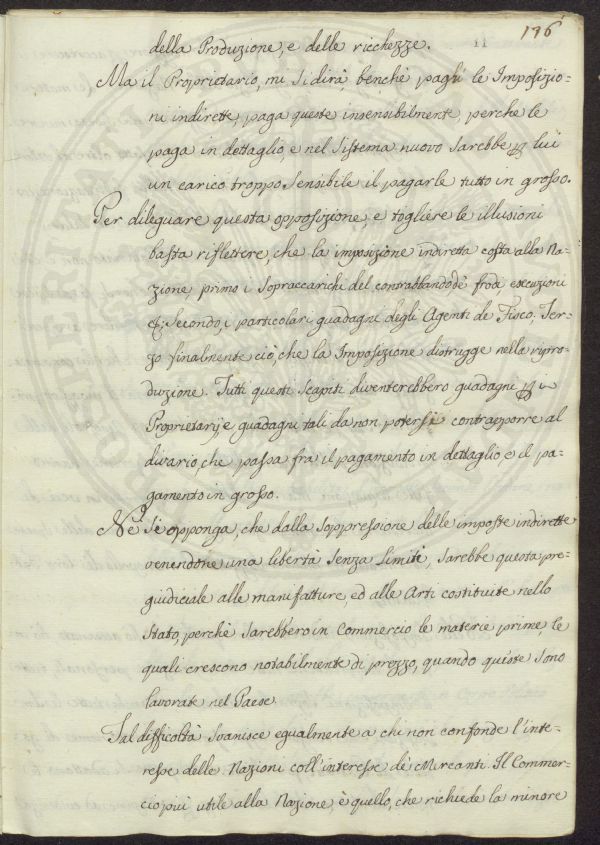 176
11
della Produzione, e delle ricchezze.
Ma il Proprietario, mi si dirà, benchè paghi le Imposizio-
ni indirette, paga queste insensibilmente, perchè le
paga in dettaglio, e nel Sistema nuovo sarebbe p lui
un carico troppo sensibile il pagarle tutto in grosso.
Per dileguare questa opposizione, e togliere le illusioni
basta riflettere, che la imposizione indiretta costa alla Na-
zione, primo i sopraccarichi del contrabbando, frodi esecuzioni
&; secondo, i particolari guadagni degli Agenti de Fisco; Ter-
zo finalmente ciò, che la Imposizione distrugge nella ripro-
duzione. Tutti questi scapiti diventerebbero guadagni p i
Proprietarj, e guadagni tali da non potersi contrapporre al
divario, che passa fra il pagamento in dettaglio, e il pa-
gamento in grosso.
Nè si opponga, che dalla soppressione delle imposte indirette
venendone una libertà senza limiti, sarebbe questa pre-
giudiciale alle manifatture, ed alle Arti costituite nello
Stato, perchè sarebbero in Commercio le materie prime, le
quali crescono notabilmente di prezzo, quando queste sono
lavorate nel Paese.
Tal difficoltà svanisce egualmente a chi non confonde l'inte-
resse delle Nazioni coll'interesse de Mercanti. Il Commer-
cio più utile alla Nazione, è quello, che richiede la minore